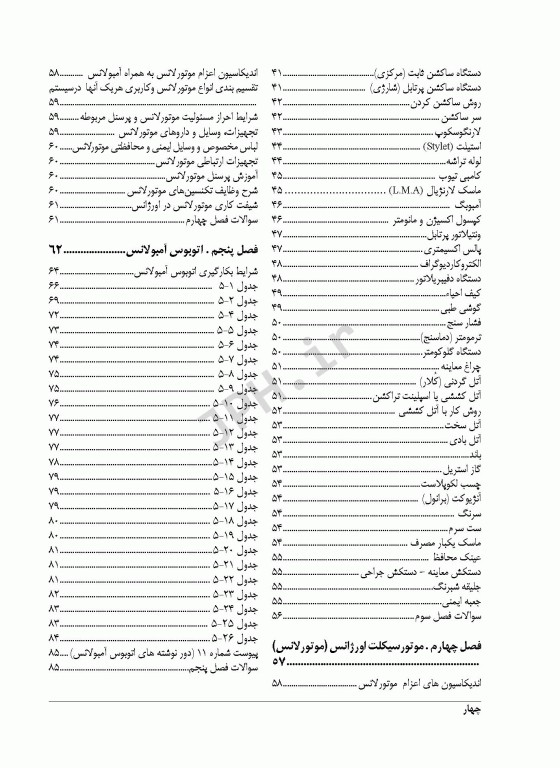 دستگاه ساکشن ثابت (مرکزی)....................۴۱
دستگاه ساکشن پرتابل (شارژی)....................۴۱
روش ساکشن کردن....................۴۲
سر ساکشن....................۴۲
لارنگوسکوپ....................۴۳
استیلت (Stylet)....................۴۴
لوله تراشه....................۴۴
کامبی تیوب....................۴۵
ماسک لارنژیال (L.M.A)....................۴۵
آمبوبگ....................۴۶
کپسول اکسیژن و مانومتر....................۴۶
ونتیلاتور پرتابل....................۴۷
پالس اکسیمتری....................۴۷
الکتروکاردیوگراف....................۴۸
دستگاه دفیبریلاتور....................۴۸
کیف احیاء....................۴۹
گوشی طبی....................۴۹
فشار سنج....................۵۰
ترمومتر (دماسنج)....................۵۰
دستگاه گلوکومتر....................۵۰
چراغ معاینه....................۵۱
آتل گردنی (کُلار)....................۵۱
آتل کششی یا اسپلینت تراکشن....................۵۱
روش کار با آتل کششی....................۵۲
آتل سخت....................۵۳
آتل بادی....................۵۳
باند....................۵۳
گاز استریل....................۵۳
چسب لکوپلاست....................۵۴
آنژیوکت (برانول)....................۵۴
سرنگ....................۵۴
ست سرم....................۵۴
ماسک یکبار مصرف....................۵۴
عینک محافظ....................۵۵
دستکش معاینه - دستکش جراحی....................۵۵
جلیقه شبرنگ....................۵۵
جعبه ایمنی....................۵۵
سوالات فصل سوم....................۵۶
فصل چهارم . موتورسیکلت اورژانس (موتورلانس)
....................۵۷
اندیکاسیون های اعزام موتورلانس....................۵۸
اندیکاسیون اعزام موتورلانس به همراه آمبولانس...........۵۸
تقسیم بندی انواع موتورلانس وکاربری هریک آنها درسیستم
....................۵۹
شرایط احراز مسئولیت موتورلانس و پرسنل مربوطه........۵۹
تجهیزات، وسایل و داروهای موتورلانس....................۵۹
لباس مخصوص و وسایل ایمنی و محافظتی موتورلانس.....۶۰
تجهیزات ارتباطی موتورلانس....................۶۰
آموزش پرسنل موتورلانس....................۶۰
شرح وظایف تکنسین‌های موتورلانس....................۶۰
شیفت کاری موتورلانس در اورژانس....................۶۱
سوالات فصل چهارم....................۶۱
فصل پنجم . اتوبوس آمبولانس....................۶۲
شرایط بکارگیری اتوبوس آمبولانس....................۶۴
جدول ۱-۵....................۶۶
جدول ۲-۵....................۶۹
جدول ۴-۵....................۷۲
جدول ۵-۵....................۷۳
جدول ۶-۵....................۷۴
جدول ۷-۵....................۷۴
جدول ۸-۵....................۷۵
جدول ۹-۵....................۷۵
جدول ۱۰-۵....................۷۶
جدول ۱۱-۵....................۷۷
جدول ۱۲-۵....................۷۷
جدول ۱۳-۵....................۷۷
جدول ۱۴-۵....................۷۸
جدول ۱۵-۵....................۷۹
جدول ۱۶-۵....................۷۹
جدول ۱۷-۵....................۷۹
جدول ۱۸-۵....................۸۰
جدول ۱۹-۵....................۸۰
جدول ۲۰-۵....................۸۱
جدول ۲۱-۵....................۸۱
جدول ۲۲-۵....................۸۱
جدول ۲۳-۵....................۸۲
جدول ۲۴-۵....................۸۳
جدول ۲۵-۵....................۸۳
جدول ۲۶-۵....................۸۴
پیوست شماره ۱۱ (دور نوشته های اتوبوس آمبولانس)....۸۵
سوالات فصل پنجم....................۸۵
چهار
JPH.ir